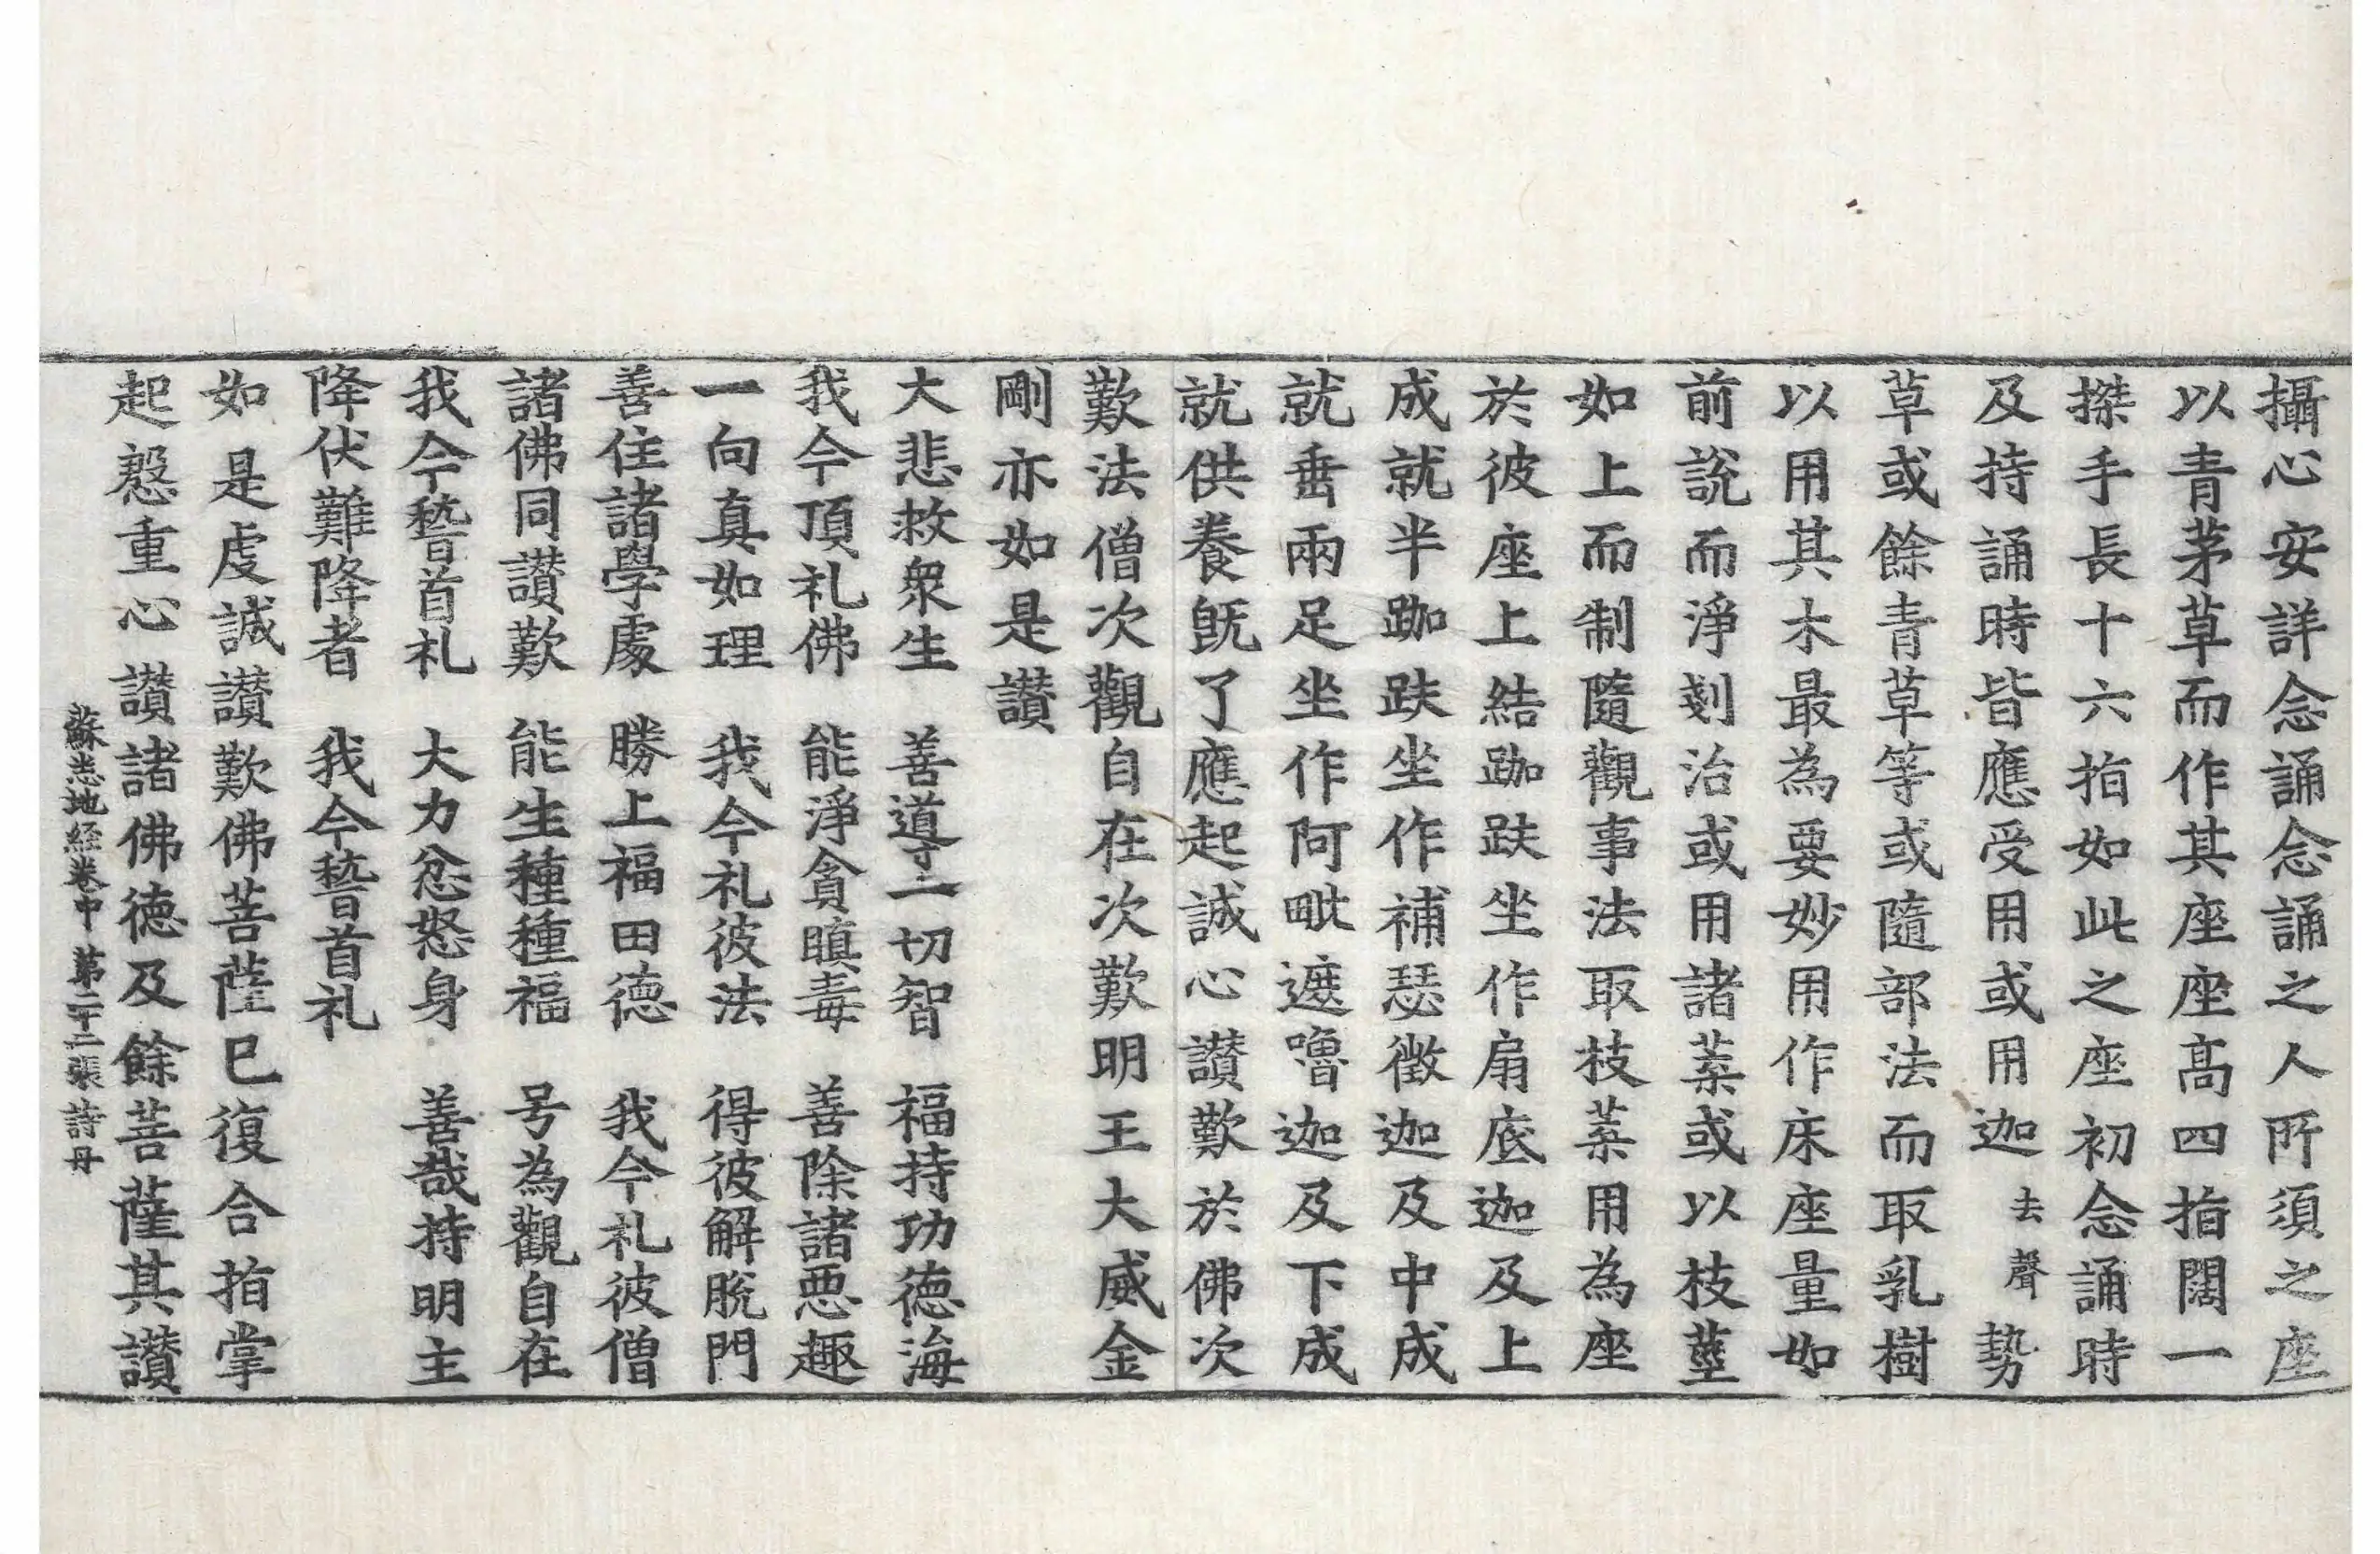 攝心安詳念誦念誦之人所須之座
以青茅草而作其座座高四指闊一
搩手長十六指如此之座初念誦時
及持誦時皆應受用或用迦去聲勢
草或餘青草等或隨部法而取乳樹
以用其木最為要妙用作床座量如
前說而淨剗治或用諸葉或以枝莖
如上而制隨觀事法取枝葉用為座
於彼座上結跏趺坐作扇底迦及上
成就半跏趺坐作補瑟徵迦及中成
就垂兩足坐作阿毗遮嚕迦及下成
就供養旣了應起誠心讃歎於佛次
歎法僧次觀自在次歎明王大威金
剛亦如是讃
大悲救衆生　善導一切智　福持功德海
我今頂礼佛　能淨貪瞋毒　善除諸惡趣
一向真如理　我今礼彼法　得彼解脫門
善住諸學處　勝上福田德　我今礼彼僧
諸佛同讃歎　能生種種福　号為觀自在
我今稽首礼　大力忿怒身　善哉持明主
降伏難降者　我今稽首礼
如是虔誠讃歎佛菩薩已復合指掌
起慇重心讃諸佛德及餘菩薩其讃
蘇悉地經卷中　第二十二張　詩母